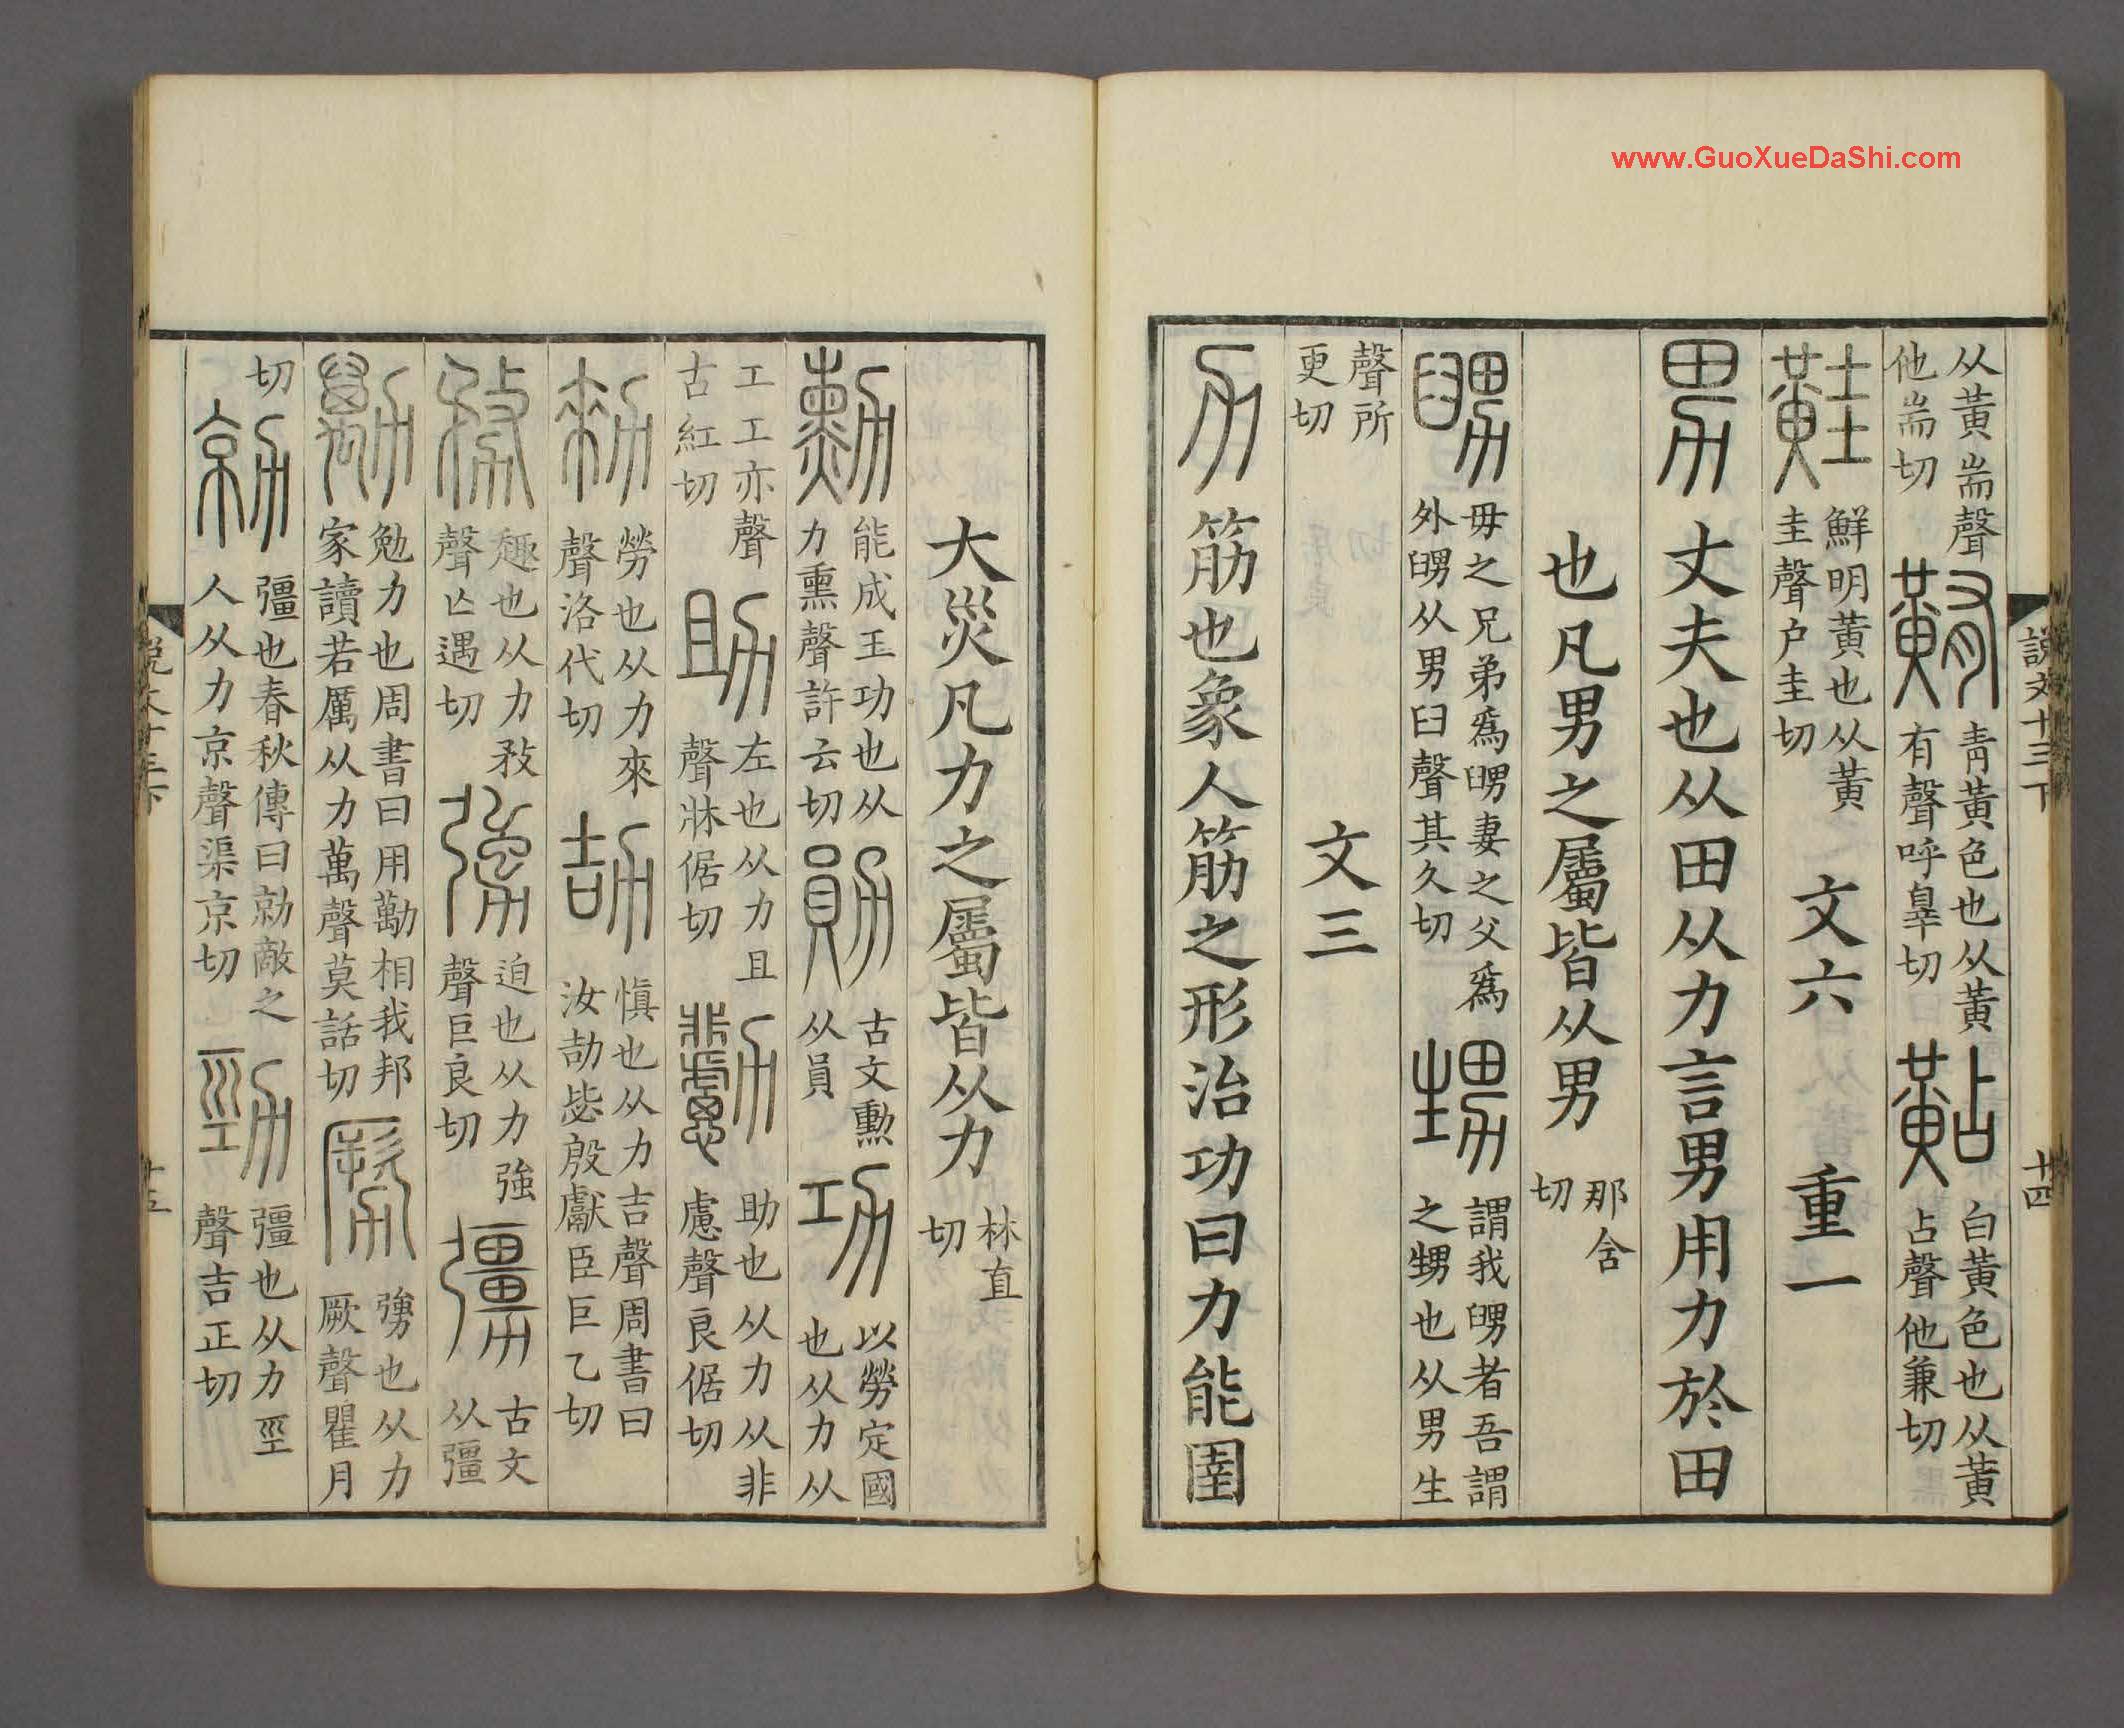 www.GuoXueDaShi.com
説文十三下
十四
从黃耑聲他耑切 䵋 青黃色也从黃有聲呼辠切 黇 白黃色也从黃占聲他兼切
黊 鮮明黃也从黃圭聲户圭切 文六 重一
男 丈夫也从田从力言男用力於田
也凡男之屬皆从男 那含切
舅 母之兄弟爲舅妻之父爲外舅从男臼聲其久切 甥 謂我舅者吾謂之甥也从男生
聲所更切 文三
力 筋也象人筋之形治功曰力能圉
大災凡力之屬皆从力 林直切
勳 能成王功也从力熏聲許云切 勛 古文勳从員 功 以勞定國也从力从
工工亦聲古紅切 助 左也从力且聲牀倨切 勴 助也从力从非慮聲良倨切
勑 勞也从力來聲洛代切 劼 愼也从力吉聲周書曰汝劼毖殷獻臣巨乙切
務 趣也从力敄聲亡遇切 勥 迫也从力強聲巨良切 𢐹 古文从彊
勱 勉力也周書曰用勱相我邦家讀若厲从力萬聲莫話切 勶 彊也从力厥聲瞿月
切 勍 彊也春秋傳曰勍敵之人从力京聲渠京切 勁 彊也从力巠聲吉正切
説文十三下
十五